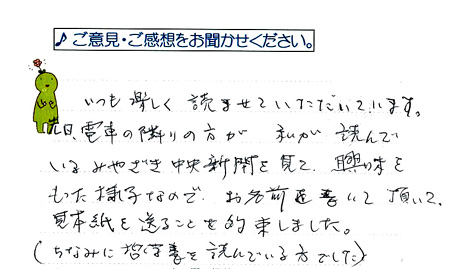 ♪ご意見・ご感想をお聞かせください。
いつも楽しく読ませていただいています。
先日、電車の隣りの方が 私が 読んで
いるみやざき中央新聞を見て、興味を
もった様子なので、お名前を書いて頂いて、
見本紙を送ることを約束しました。
(ちなみに哲学書を読んでいる方でした)